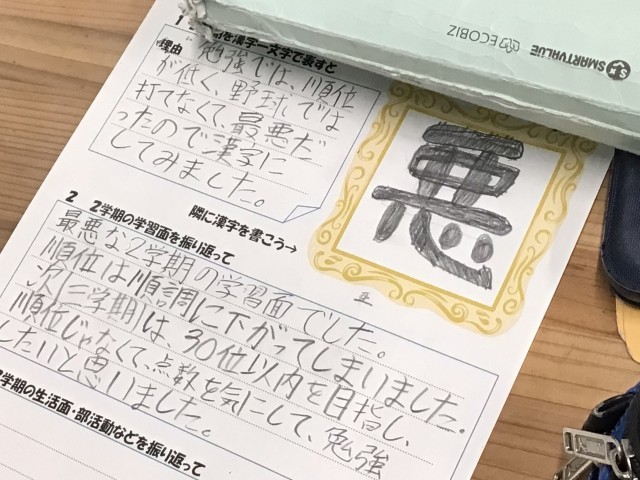 SMARTVALUE ECOBIZ
を漢字一文字で表すと
理由
勉強では、順位
が低く、野球では
打てなくて、最悪だ
ったので漢字に
してみました。
悪
隣に漢字を書こう→
2 2学期の学習面を振り返って
最悪な2学期の学習面でした。
順位は順調に下がってしまいました。
次に三学期は、30位以内を目指し、
順位じゃなくて、点数を気にして、勉強
したいと思いました。
学期の生活面・部活動などを振り返って